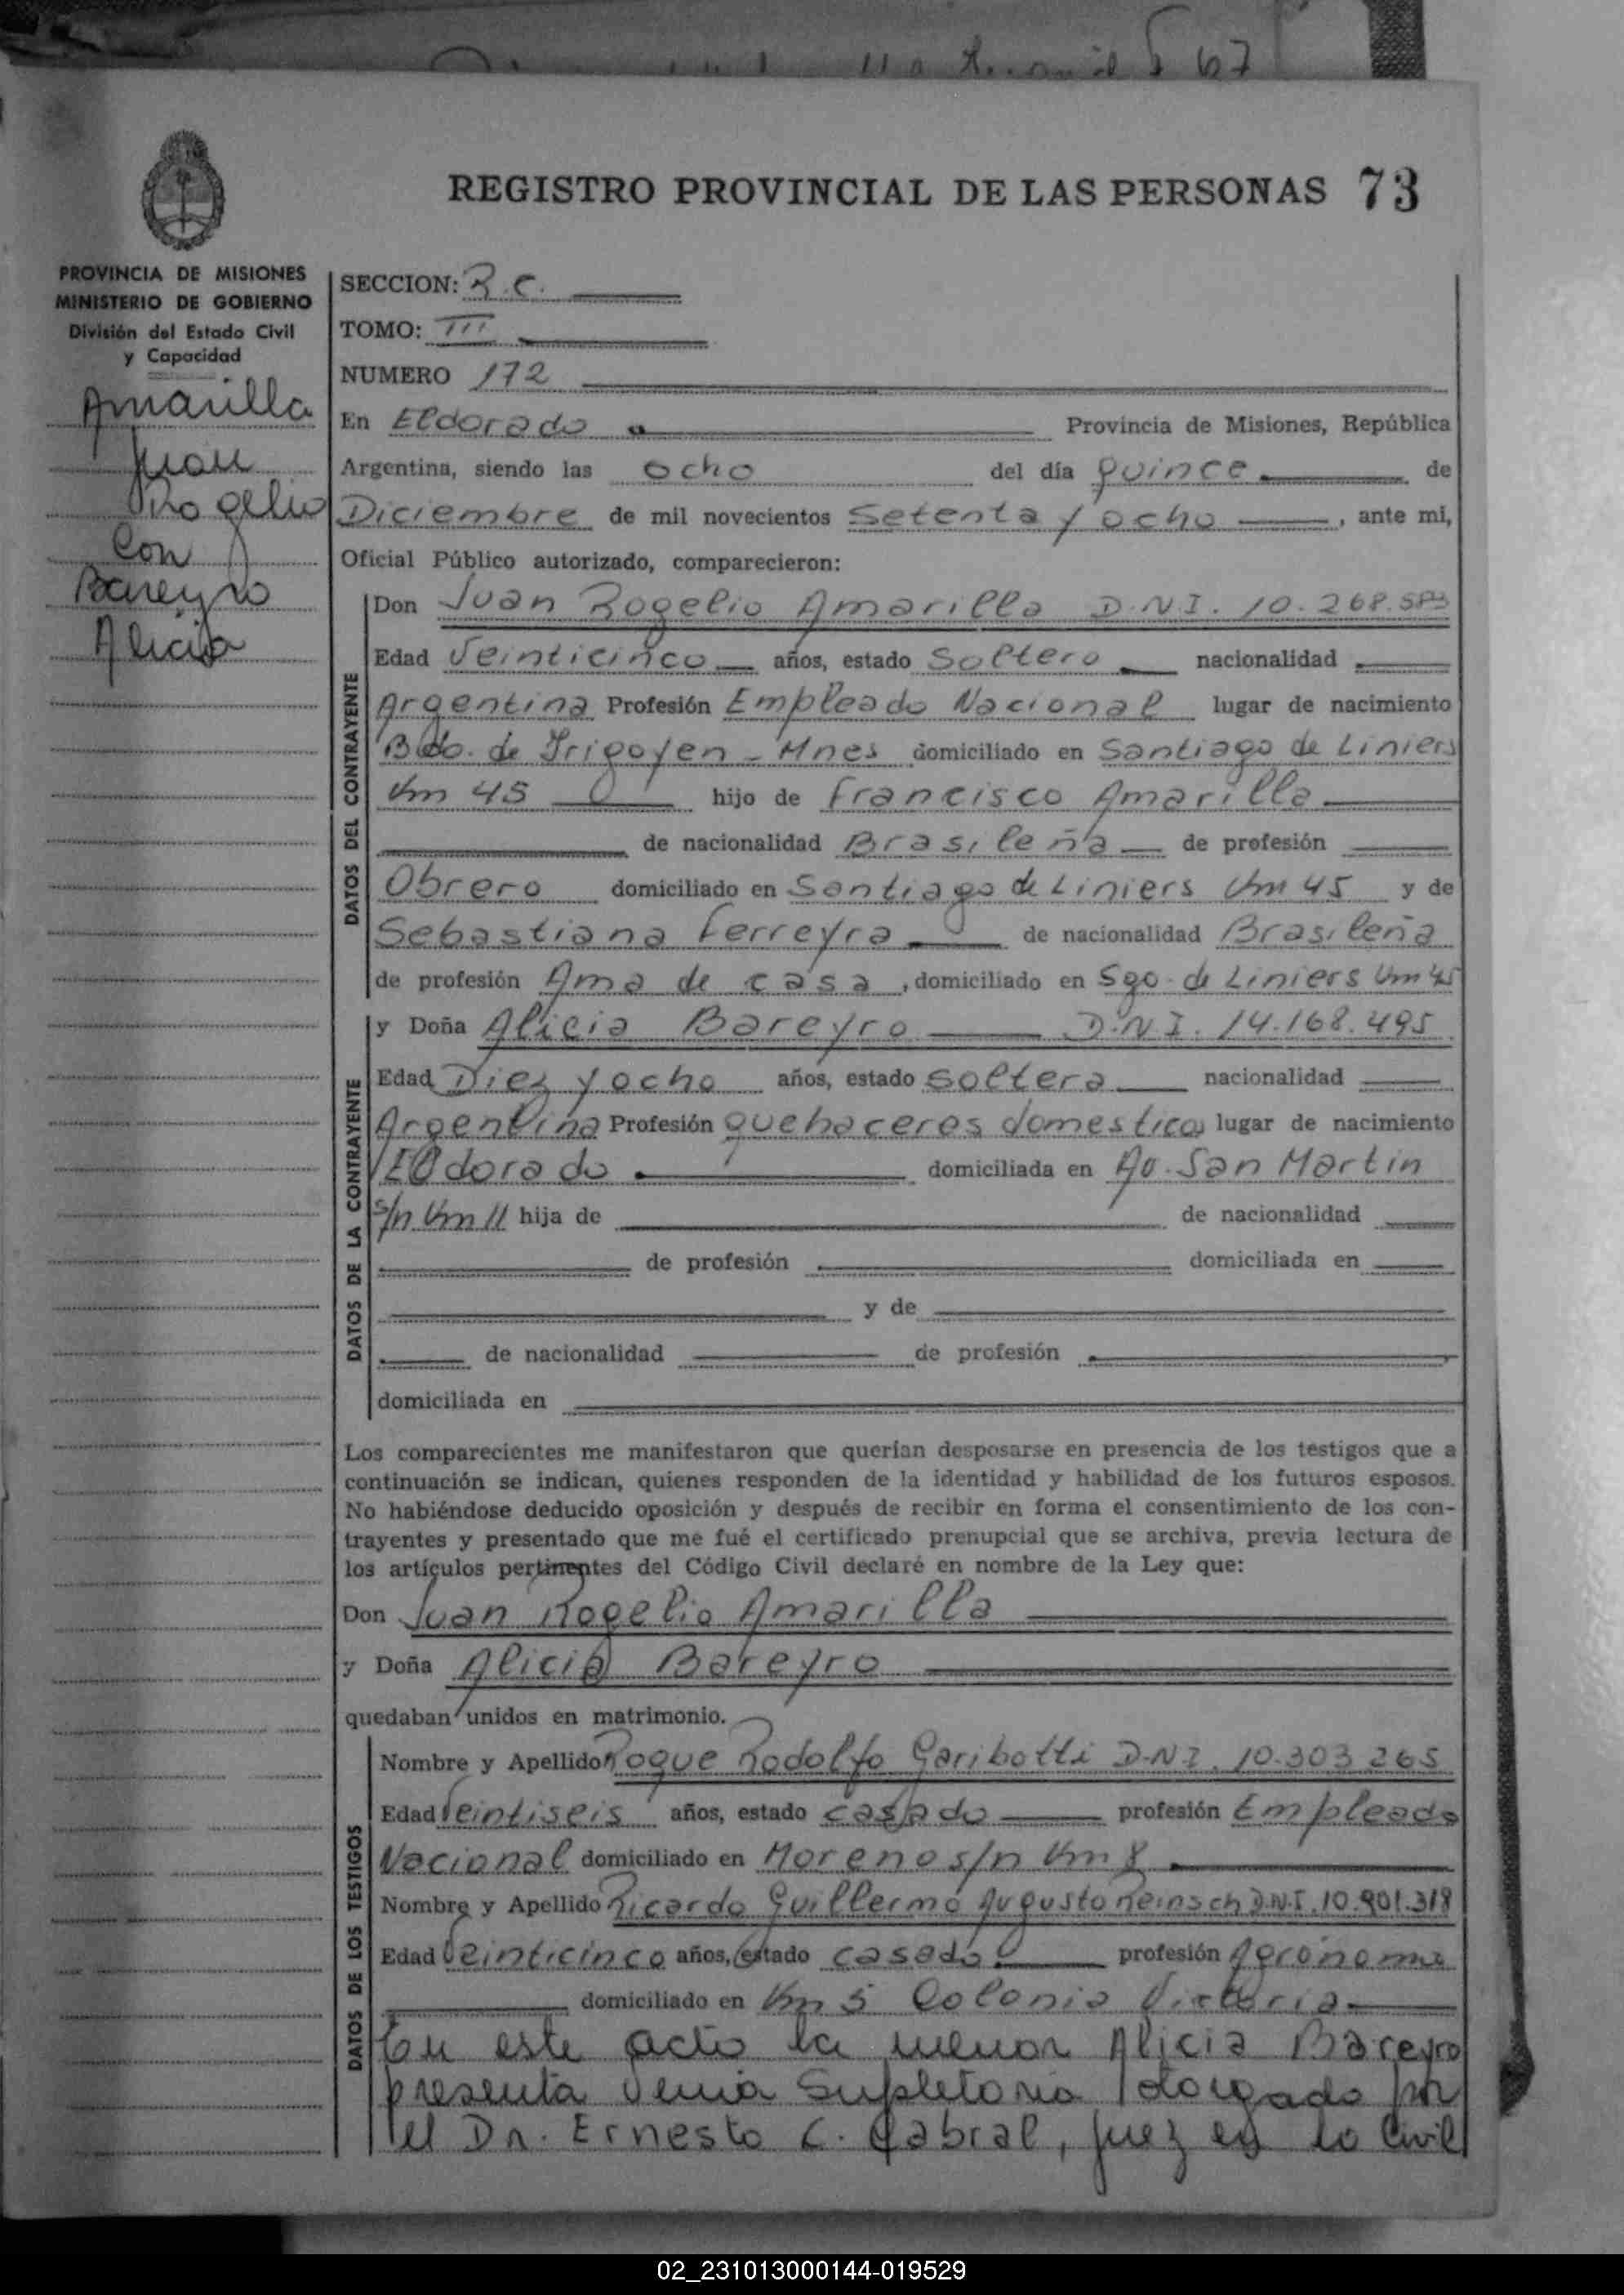 REGISTRO PROVINCIAL DE LAS PERSONAS 73
PROVINCIA DE MISIONES
MINISTERIO DE GOBIERNO
División del Estado Civil
y Capacidad
Amarilla
Juan
Rogelio
Con
Bareyro
Alicia
SECCION: R.C.
TOMO: III
NUMERO 172
En Eldorado Provincia de Misiones, República
Argentina, siendo las ocho del día quince de
Diciembre de mil novecientos Setenta y ocho, ante mi,
Oficial Público autorizado, comparecieron:
DATOS DEL CONTRAYENTE
Don Juan Rogelio Amarilla D.N.I. 10.268.583
Edad Veinticinco años, estado Soltero nacionalidad
Argentina Profesión Empleado Nacional lugar de nacimiento
Bdo. de Irigoyen - Mnes domiciliado en Santiago de Liniers
Km 45 hijo de Francisco Amarilla
de nacionalidad Brasileña de profesión
Obrero domiciliado en Santiago de Liniers Km 45 y de
Sebastiana Ferreyra de nacionalidad Brasileña
de profesión Ama de casa, domiciliado en Sgo. de Liniers Km 45
DATOS DE LA CONTRAYENTE
y Doña Alicia Bareyro D.N.I. 14.168.495
Edad Diez y ocho años, estado soltera nacionalidad
Argentina Profesión quehaceres domesticos lugar de nacimiento
Eldorado domiciliada en Av. San Martin
s/n Km 11 hija de de nacionalidad
de profesión domiciliada en
y de
de nacionalidad de profesión
domiciliada en
Los comparecientes me manifestaron que querían desposarse en presencia de los testigos que a
continuación se indican, quienes responden de la identidad y habilidad de los futuros esposos.
No habiéndose deducido oposición y después de recibir en forma el consentimiento de los con-
trayentes y presentado que me fué el certificado prenupcial que se archiva, previa lectura de
los artículos pertinentes del Código Civil declaré en nombre de la Ley que:
Don Juan Rogelio Amarilla
y Doña Alicia Bareyro
quedaban unidos en matrimonio.
DATOS DE LOS TESTIGOS
Nombre y Apellido Roque Rodolfo Garibotti D.N.I. 10.303.265
Edad Veintiseis años, estado casado profesión Empleado
Nacional domiciliado en Moreno s/n Km 8
Nombre y Apellido Ricardo Guillermo Augusto Reinsch D.N.I. 10.901.318
Edad Veinticinco años, estado casado profesión Agrónomo
domiciliado en Km 5 Colonia Victoria
En este acto la menor Alicia Bareyro
presenta Venia Supletoria otorgado por
el Dr. Ernesto C. Cabral, juez en lo Civil
02_231013000144-019529